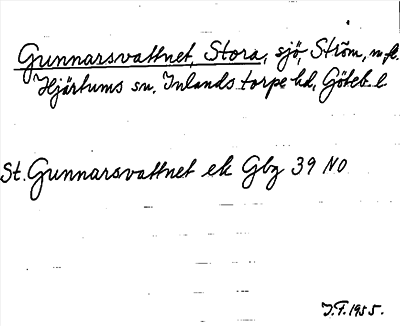 Gunnarsvattnet, Stora, sjö, Ström, m.fl.
Hjärtums sn, Inlands torpe hd, Göteb. l.
St. Gunnarsvattnet ek Gbg 39 NO
J.F. 1955.